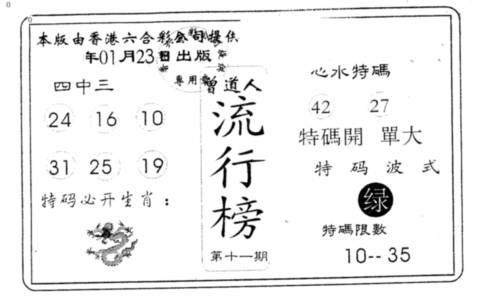 本版由香港六合彩公司提供
年01月23日出版
專用章
四中三
24 16 10
31 25 19
特码必开生肖：
曾道人
流行榜
第十一期
心水特碼
42 27
特碼開 單大
特码波式
绿
特碼限數
10--35